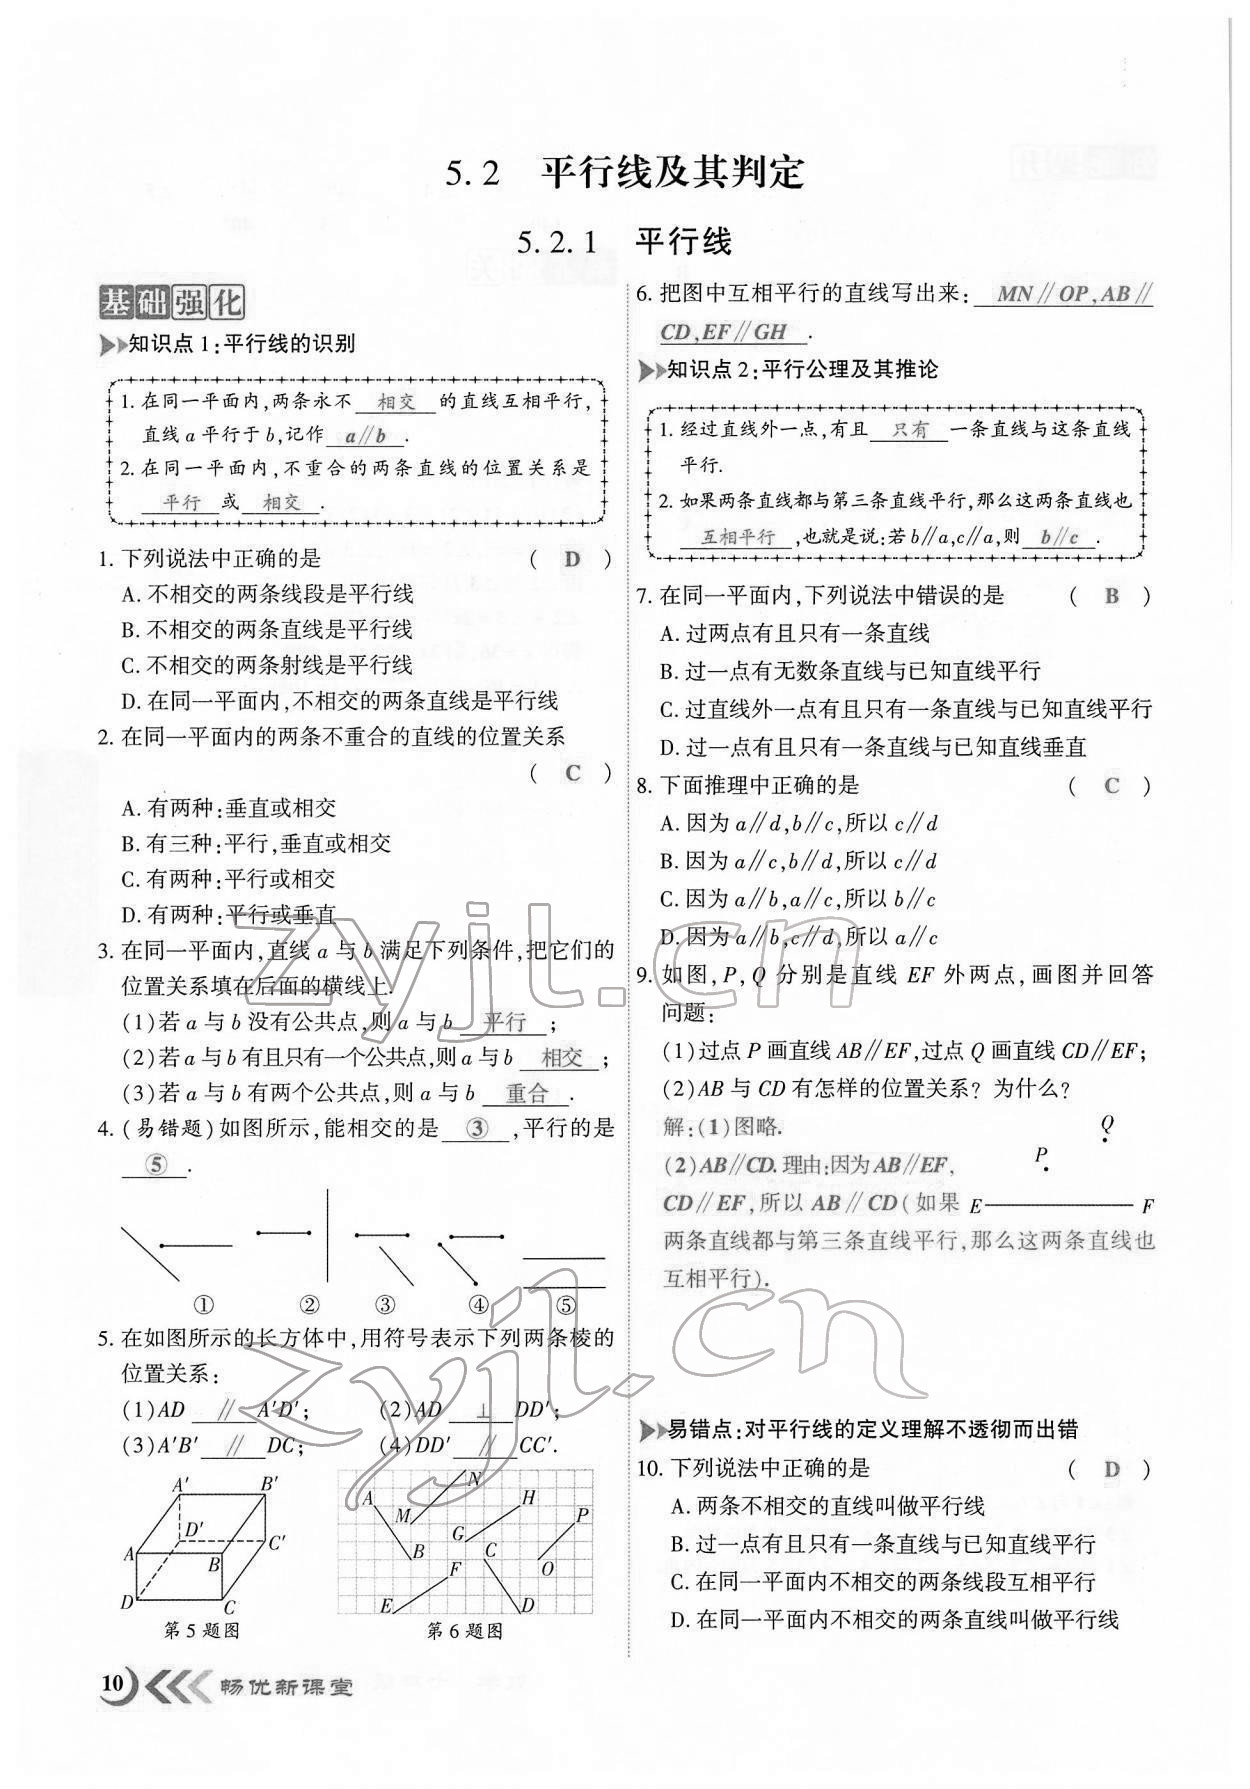 5.2 平行线及其判定
5.2.1 平行线
基础强化
知识点1:平行线的识别
1. 在同一平面内,两条永不 相交 的直线互相平行,
直线a平行于b,记作 a∥b .
2. 在同一平面内,不重合的两条直线的位置关系是
平行 或 相交 .
1. 下列说法中正确的是 ( D )
A. 不相交的两条线段是平行线
B. 不相交的两条直线是平行线
C. 不相交的两条射线是平行线
D. 在同一平面内,不相交的两条直线是平行线
2. 在同一平面内的两条不重合的直线的位置关系
( C )
A. 有两种:垂直或相交
B. 有三种:平行,垂直或相交
C. 有两种:平行或相交
D. 有两种:平行或垂直
3. 在同一平面内,直线a与b满足下列条件,把它们的
位置关系填在后面的横线上.
(1)若a与b没有公共点,则a与b 平行 ;
(2)若a与b有且只有一个公共点,则a与b 相交 ;
(3)若a与b有两个公共点,则a与b 重合 .
4. (易错题)如图所示,能相交的是 ③ ,平行的是
⑤ .
① ② ③ ④ ⑤
5. 在如图所示的长方体中,用符号表示下列两条棱的
位置关系:
(1)AD ∥ A′D′; (2)AD ⊥ DD′;
(3)A′B′ ∥ DC; (4)DD′ ∥ CC′.
A′ B′ D′ C′ A B D C
第5题图
A M N H P G B C F O E D
第6题图
10 畅优新课堂
6. 把图中互相平行的直线写出来: MN∥OP,AB∥
CD,EF∥GH .
知识点2:平行公理及其推论
1. 经过直线外一点,有且 只有 一条直线与这条直线
平行.
2. 如果两条直线都与第三条直线平行,那么这两条直线也
互相平行 ,也就是说:若b∥a,c∥a,则 b∥c .
7. 在同一平面内,下列说法中错误的是 ( B )
A. 过两点有且只有一条直线
B. 过一点有无数条直线与已知直线平行
C. 过直线外一点有且只有一条直线与已知直线平行
D. 过一点有且只有一条直线与已知直线垂直
8. 下面推理中正确的是 ( C )
A. 因为a∥d,b∥c,所以c∥d
B. 因为a∥c,b∥d,所以c∥d
C. 因为a∥b,a∥c,所以b∥c
D. 因为a∥b,c∥d,所以a∥c
9. 如图,P,Q分别是直线EF外两点,画图并回答
问题:
(1)过点P画直线AB∥EF,过点Q画直线CD∥EF;
(2)AB与CD有怎样的位置关系? 为什么?
解:(1)图略.
(2)AB∥CD.理由:因为AB∥EF,
CD∥EF,所以AB∥CD(如果
两条直线都与第三条直线平行,那么这两条直线也
互相平行).
Q
P
E F
易错点:对平行线的定义理解不透彻而出错
10. 下列说法中正确的是 ( D )
A. 两条不相交的直线叫做平行线
B. 过一点有且只有一条直线与已知直线平行
C. 在同一平面内不相交的两条线段互相平行
D. 在同一平面内不相交的两条直线叫做平行线
zyjl.cn
zyjl.cn